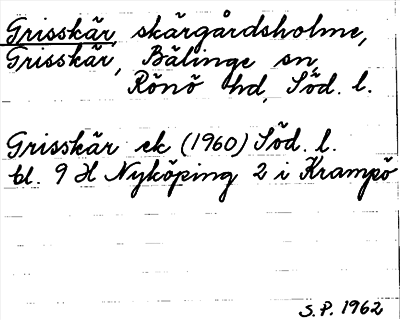 Grisskär, skärgårdsholme,
Grisskär, Bälinge sn,
Rönö hd, Söd. l.
Grisskär ek (1960) Söd. l.
bl. 9 H Nyköping 2 i Krampö
S.P. 1962